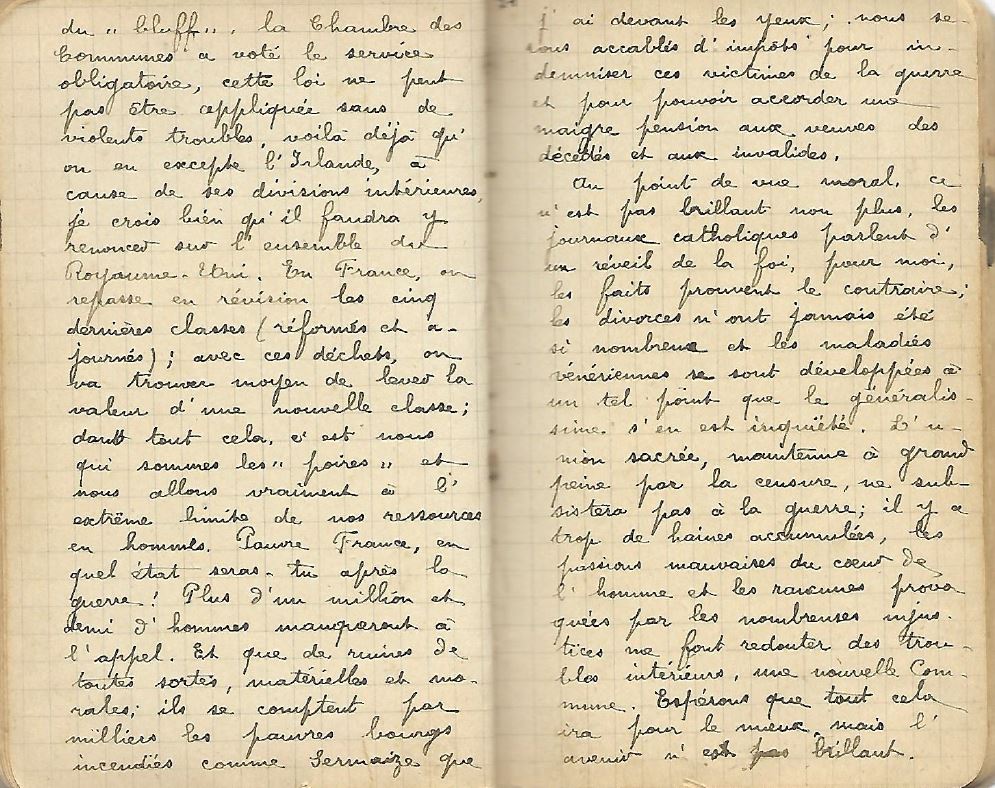 du „ bluff „. la Chambre des
Communes a voté le service
obligatoire, cette loi ne peut
pas être appliquée sans de
violents troubles, voilà déjà qu'
on en excepte l'Irlande, à
cause de ses divisions intérieures,
je crois bien qu'il faudra y
renoncer sur l'ensemble du
Royaume-Uni. En France, on
repasse en révision les cinq
dernières classes (réformés et a-
journés); avec ces déchets, on
va trouver moyen de lever la
valeur d'une nouvelle classe;
dans tout cela, c'est nous
qui sommes les „ poires „ et
nous allons vraiment à l'
extrême limite de nos ressources
en hommes. Pauvre France, en
quel état seras-tu après la
guerre! Plus d'un million et
demi d'hommes manqueront à
l'appel. Et que de ruines de
toutes sortes, matérielles et mo-
rales; ils se comptent par
milliers les pauvres bourgs
incendiés comme Sermaize que
j'ai devant les yeux; nous se-
rons accablés d'impôts pour in-
demniser ces victimes de la guerre
et pour pouvoir accorder une
maigre pension aux veuves des
décédés et aux invalides.
Au point de vue moral, ce
n'est pas brillant non plus, les
journaux catholiques parlent d'
un réveil de la foi, pour moi,
les faits prouvent le contraire;
les divorces n'ont jamais été
si nombreux et les maladies
vénériennes se sont développées à
un tel point que le généralis-
sime s'en est inquiété. L'u-
nion sacrée, maintenue à grand
peine par la censure, ne sub-
sistera pas à la guerre; il y a
trop de haines accumulées, les
passions mauvaises du cœur de
l'homme et les rancunes provo
quées par les nombreuses injus-
tices me font redouter des trou-
bles intérieurs, une nouvelle Com-
mune. Espérons que tout cela
ira pour le mieux, mais l'
avenir n'est pas brillant.